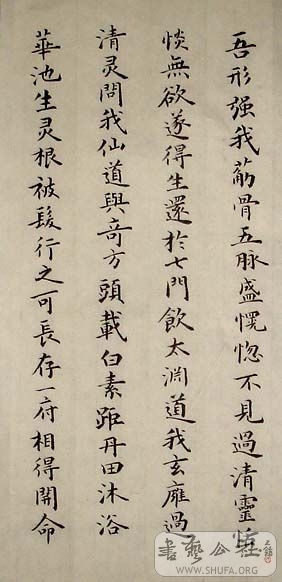 吾形强我筋骨五脉盛愰惚不見過清靈恬
惔無欲遂得生還於七門飲太渊道我玄廱過
清灵問我仙道與奇方頭載白素距丹田沐浴
華池生灵根被髮行之可長存一府相得開命
書藝公社
WWW.SHUFA.ORG